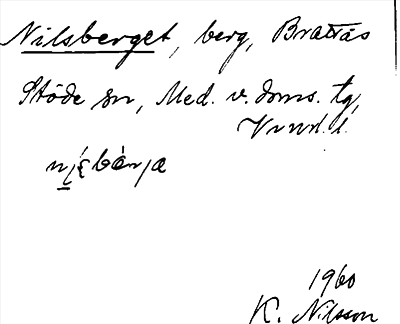 Nilsberget, berg, Brattås
Stöde sn, Med. v. doms. tg,
Vnrl. l.
1960
K. Nilsson